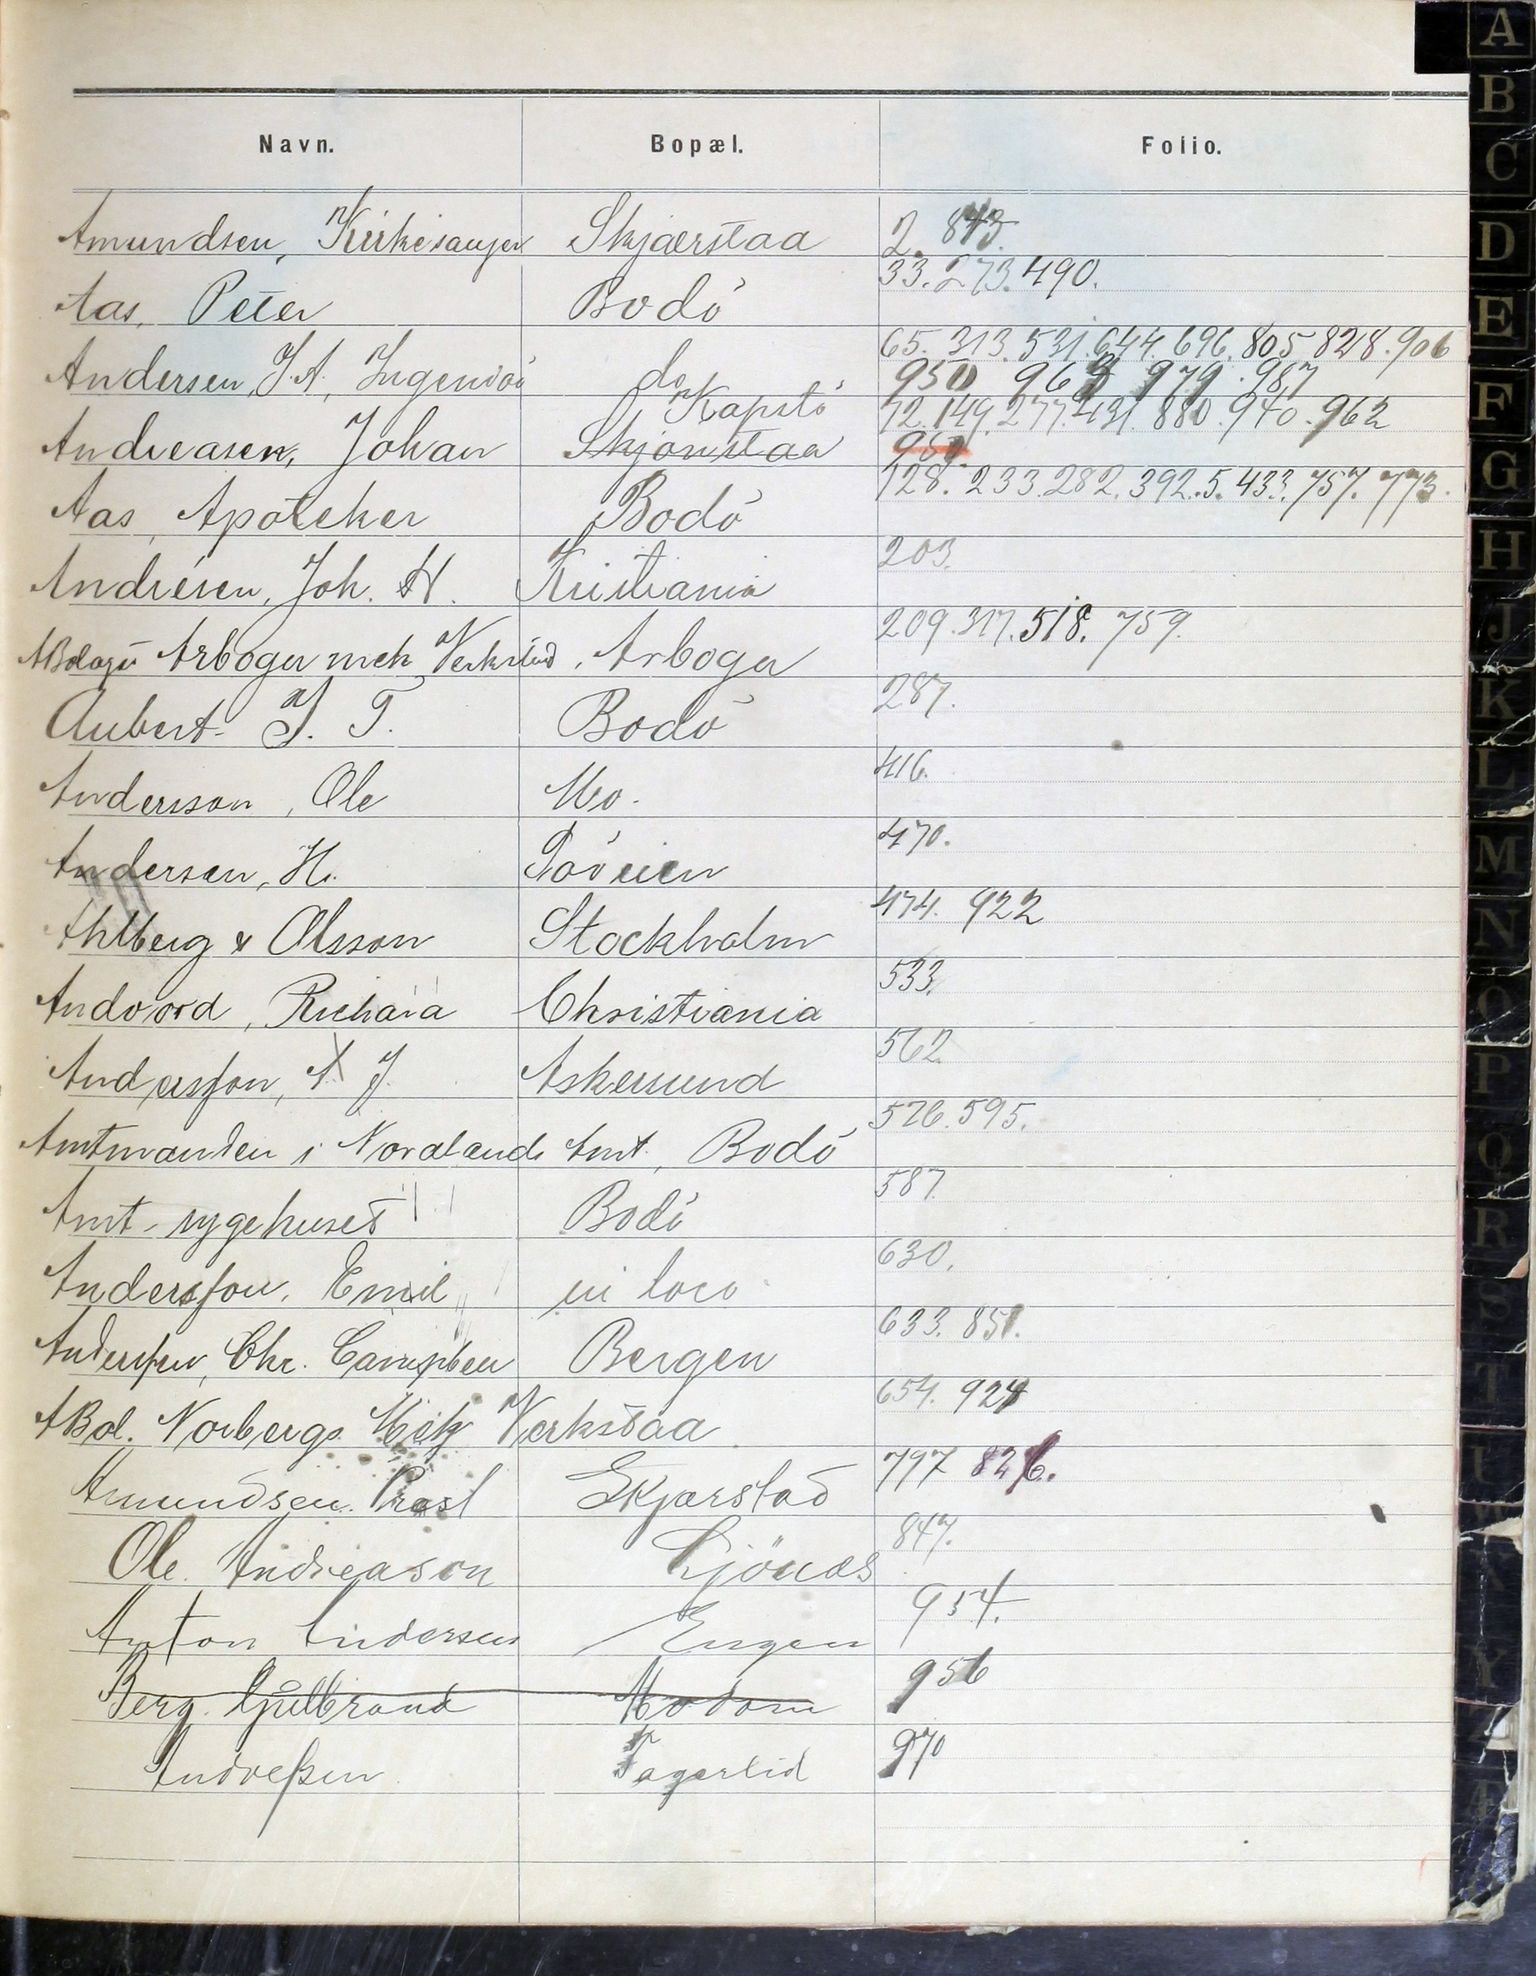 Navn. Bopæl. Folio.
Amundsen, Kirkesanger Skjærstad 2. 843.
Aas, Peter Bodö 33. 273. 490.
Andersen, J. A., Ingeniör do 65. 313. 531. 644. 696. 805 828. 906
950 963 979. 987
Andreasen, Johan Kapstö 72. 149. 277. 431. 880. 940. 962
Skjönstaa 980
Aas, Apoteker Bodö 128. 233. 282. 392. 5. 433. 757. 773.
Andresen, Joh. H. Kristiania 203.
ABolaget Arboga mek Verkstad, Arboga 209. 317. 518. 759.
Aubert J. T. Bodö 287.
Andersson, Ole Mo. 416.
Andersen, H. 470.
Ahlberg & Olsson Stockholm 474. 922
Andvord, Richard Christiania 533.
Andersson, A. J. Askersund 562.
Amtmanden i Nordlands Amt, Bodö 576. 595.
Amt-sygehuset Bodö 587.
Andersson, Emil in loco 630.
Andersen, Chr. Campbell Bergen 633. 851.
ABol. Norbergs Mek Verkstad 654. 924
Amundsen. Prest Skjærstad 797 826.
Ole Andreason Sjönæs 847.
Anton Andersen Engen 954.
Berg. Gulbrand Modom 956
Andressen Fagerlid 970
A
B
C
D
E
F
G
H
J
K
L
M
N
O
P
Q
R
S
T
U
Y